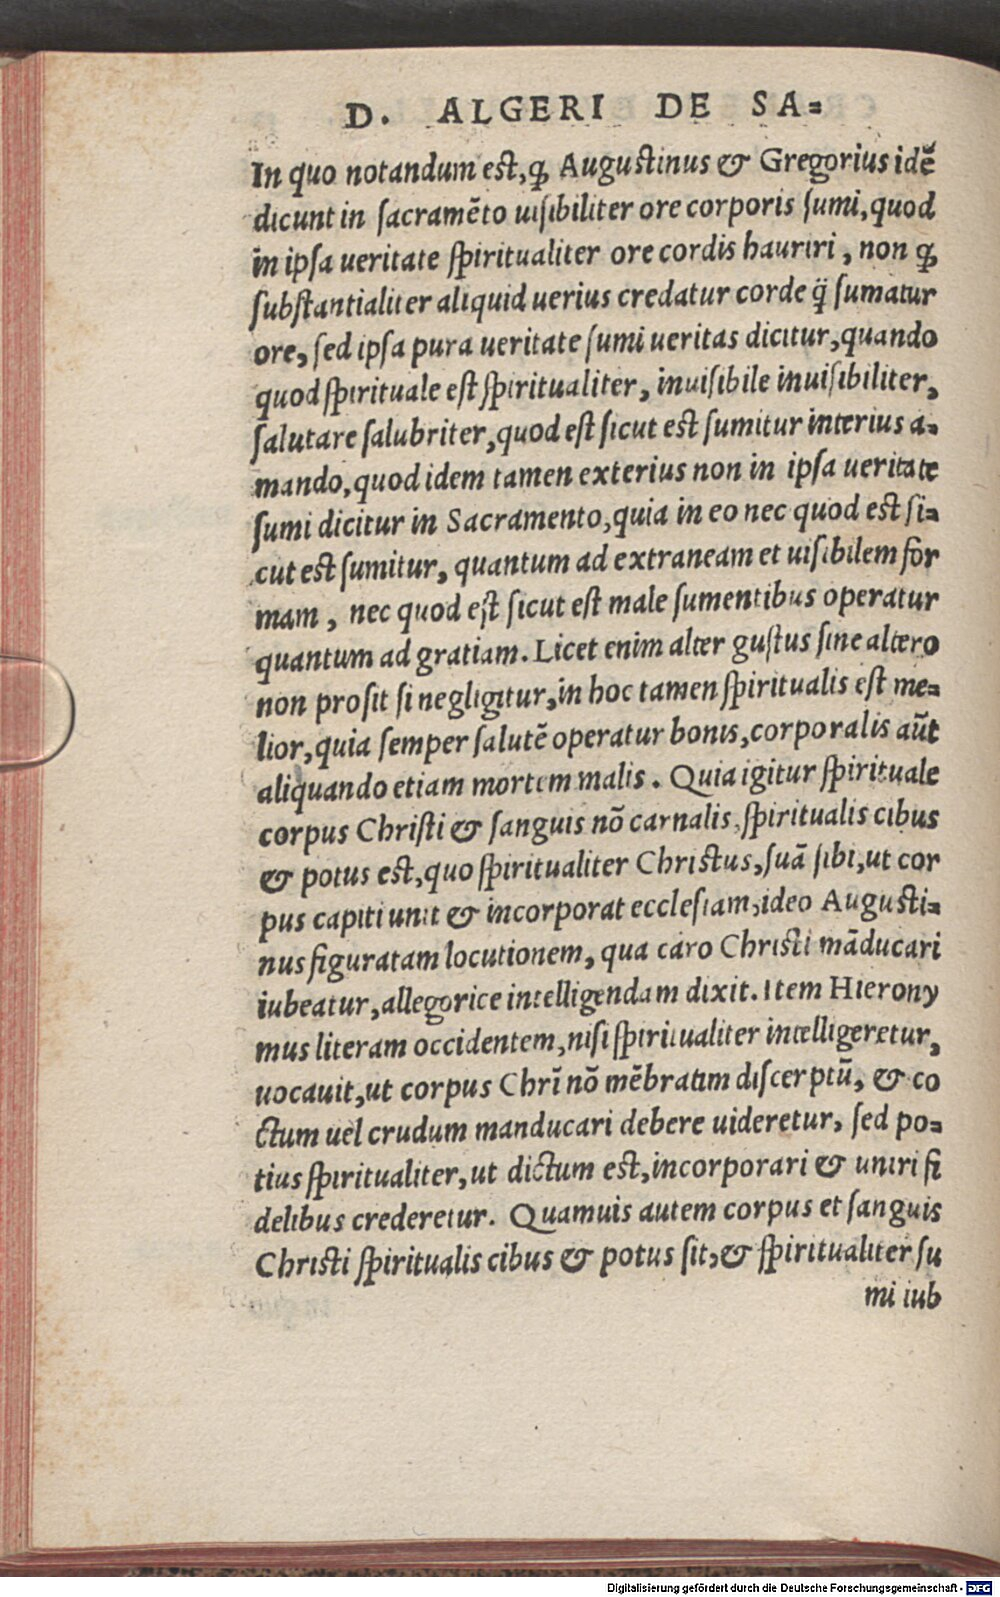 D. ALGERI DE SA=
In quo notandum est, ꝙ Augustinus & Gregorius idē
dicunt in sacramēto uisibiliter ore corporis sumi, quod
in ipsa ueritate spiritualiter ore cordis hauriri, non ꝙ
substantialiter aliquid uerius credatur corde q̈ sumatur
ore, sed ipsa pura ueritate sumi ueritas dicitur, quando
quod spirituale est spiritualiter, inuisibile inuisibiliter,
salutare salubriter, quod est sicut est sumitur interius a=
mando, quod idem tamen exterius non in ipsa ueritate
sumi dicitur in Sacramento, quia in eo nec quod est si=
cut est sumitur, quantum ad extraneam et uisibilem for
mam, nec quod est sicut est male sumentibus operatur
quantum ad gratiam. Licet enim alter gustus sine altero
non prosit si negligitur, in hoc tamen spiritualis est me=
lior, quia semper salutē operatur bonis, corporalis aūt
aliquando etiam mortem malis. Quia igitur spirituale
corpus Christi & sanguis nō carnalis, spiritualis cibus
& potus est, quo spiritualiter Christus, suā sibi, ut cor
pus capiti unit & incorporat ecclesiam, ideo Augusti=
nus figuratam locutionem, qua caro Christi māducari
iubeatur, allegorice intelligendam dixit. Item Hierony
mus literam occidentem, nisi spiritualiter intelligeretur,
uocauit, ut corpus Chrī nō mēbratim discerptū, & co
ctum uel crudum manducari debere uideretur, sed po=
tius spiritualiter, ut dictum est, incorporari & uniri fi
delibus crederetur. Quamuis autem corpus et sanguis
Christi spiritualis cibus & potus sit, & spiritualiter su
mi iub
Digitalisierung gefördert durch die Deutsche Forschungsgemeinschaft - DFG